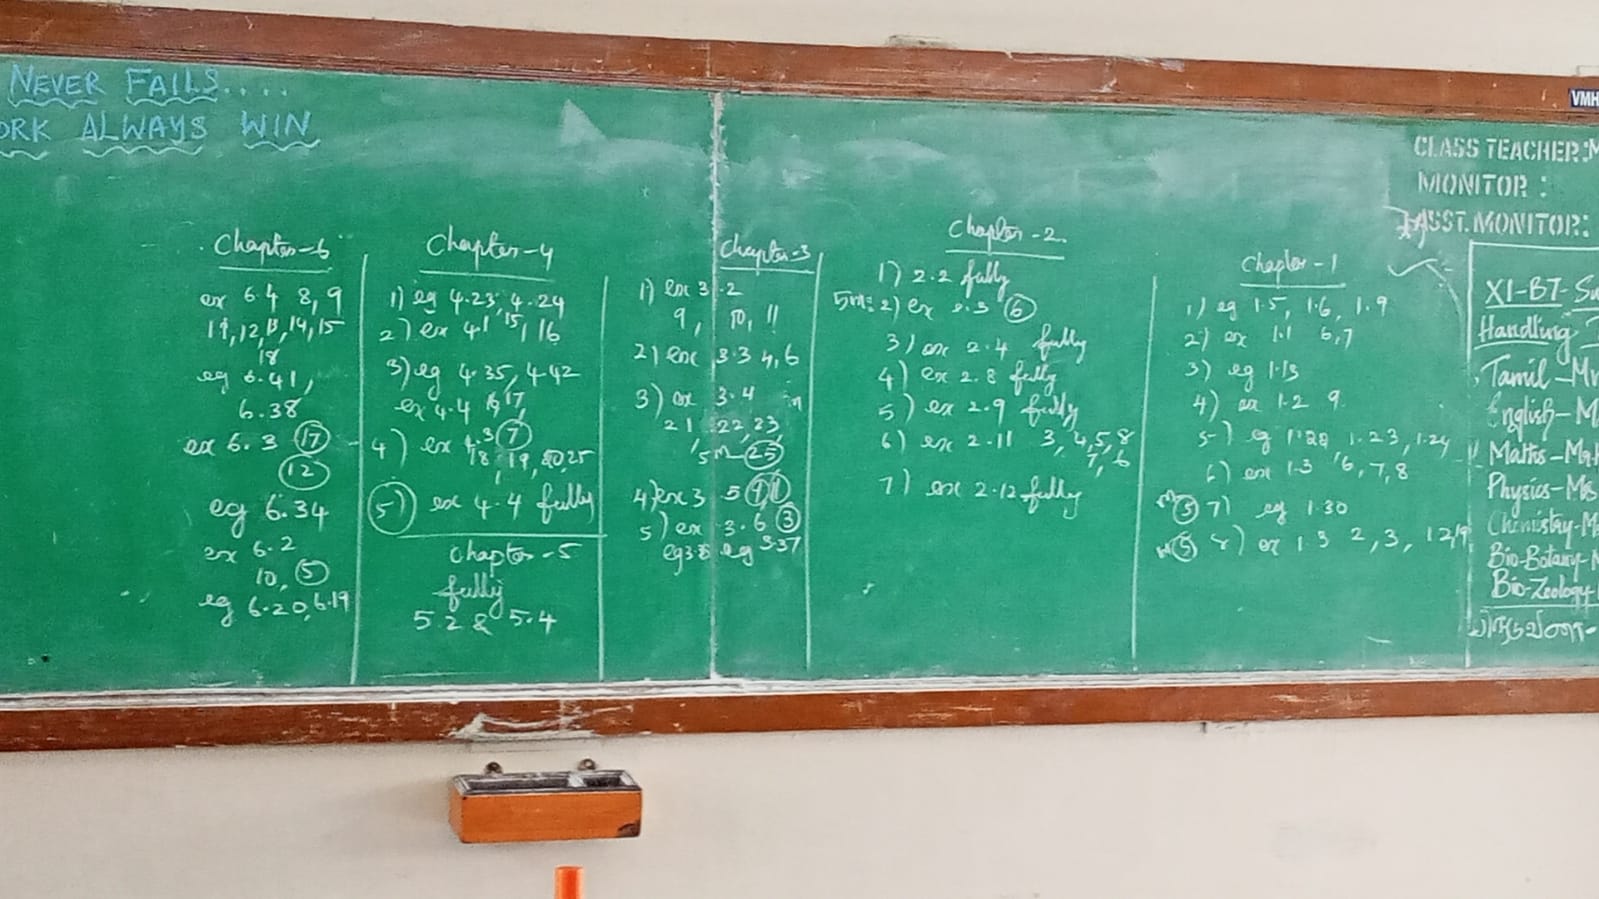 NEVER FAILS....
ORK ALWAYS WIN
VMH
CLASS TEACHER: M
MONITOR :
ASST. MONITOR:
Chapter-6
ex 6.4 8, 9
11, 12, 13, 14, 15
18
eg 6.41,
6.38
ex 6.3 17
12
eg 6.34
ex 6.2
10, 5
eg 6.20, 6.19
Chapter-4
1) eg 4.23, 4.24
2) ex 4.1 15, 16
3) eg 4.35, 4.42
ex 4.4 17
4) ex 4.3 7
18, 19, 20, 25
5) ex 4.4 fully
Chapter-5
fully
5.2 & 5.4
Chapter-3
1) ex 3.2
9, 10, 11
2) ex 3.3 4, 6
3) ex 3.4
21 22, 23,
5m 25
4) ex 3.5
5) ex 3.6 3
eg 3.37
Chapter-2
1) 2.2 fully
5m 2) ex 2.3 6
3) ex 2.4 fully
4) ex 2.8 fully
5) ex 2.9 fully
6) ex 2.11 3, 4, 5, 8
7, 6
7) ex 2.12 fully
Chapter-1
1) eg 1.5, 1.6, 1.9
2) ex 1.1 6, 7
3) eg 1.13
4) ex 1.2 9
5) eg 1.22 1.23, 1.24
6) ex 1.3 6, 7, 8
5 7) eg 1.30
5 8) ex 1.3 2, 3, 12, 19
XI-B7- Su
Handling
Tamil - Mr
English - M
Maths - M
Physics - M
Chemistry - M
Bio-Botany -
Bio-Zoology -